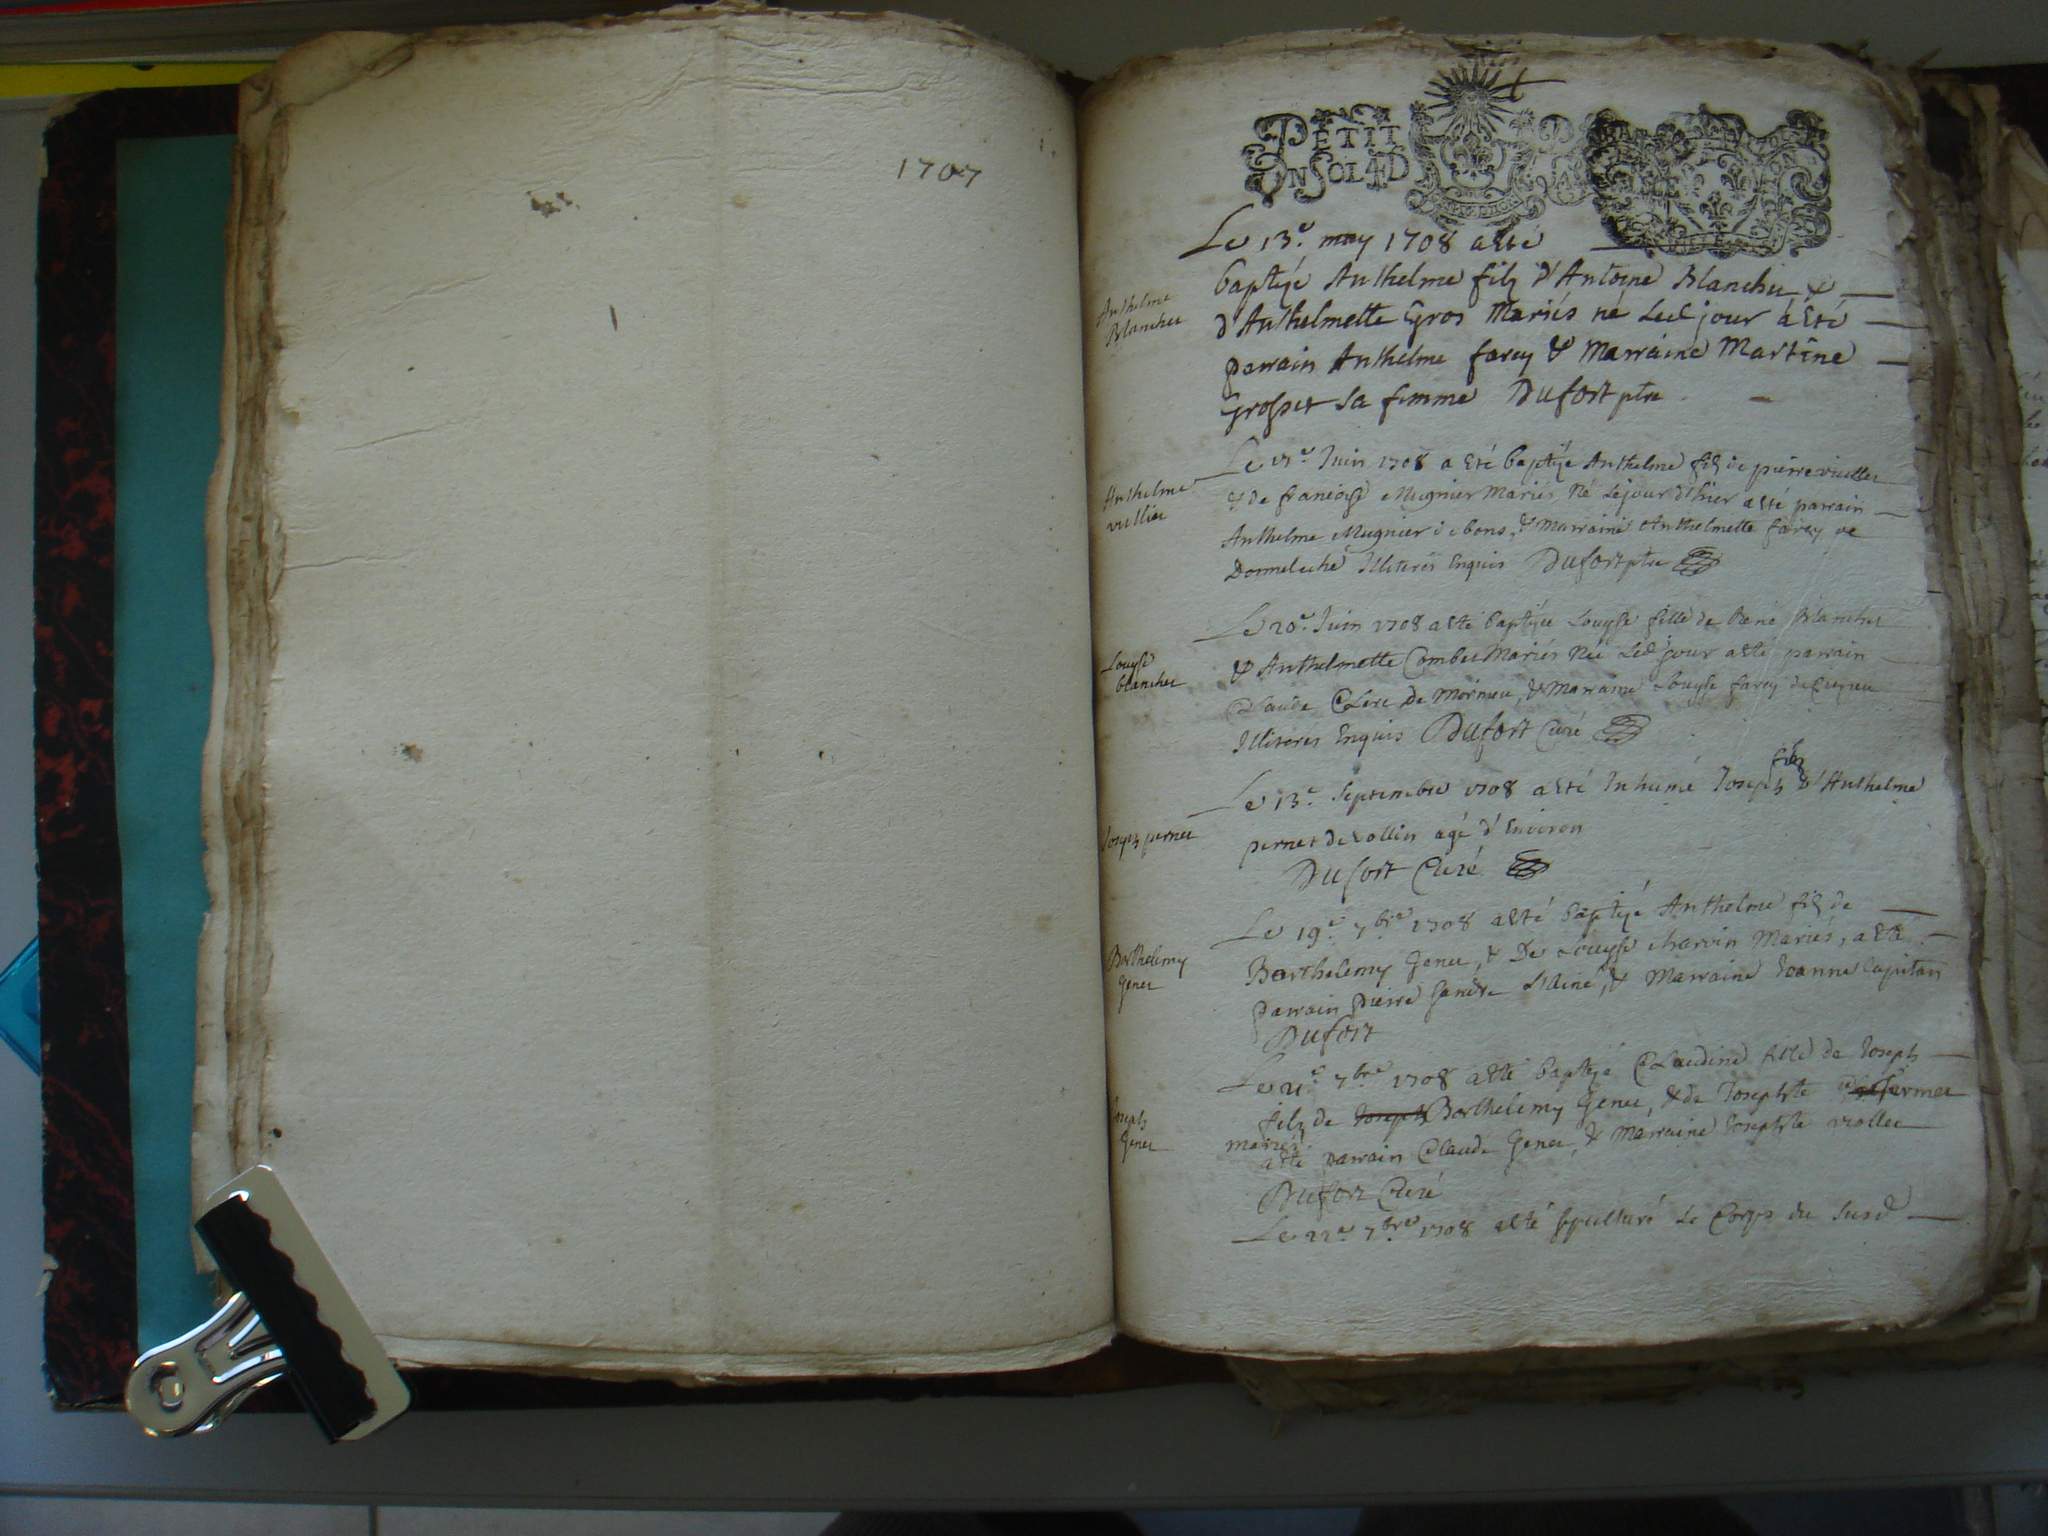 1707
PETIT
UN SOL 4 D
Le 13e may 1708 a esté
baptisé Anthelme filz d'Antoine Blanchet &
d'Anthelmette Gros Mariés né led jour a esté
parrain Anthelme farcy & Marraine Martine
Grosset sa femme Dufort ptre
Anthelme
Blanchet
Juin 1708 a esté baptisé Anthelme filz de pierre vuillet
& de françoise Mugnier Mariés Né le jour d'hier a esté parrain
Anthelme Mugnier de bons & marraine Anthelmette farcy de
illiterés Enquis Dufort ptre
Anthelme
vullier
Le 20e Juin 1708 a esté baptisée Louyse fille de René Blanchet
& Anthelmette Combet Mariés Née led jour a esté parrain
Claude Clerc de Mormeu, & Marraine Louyse farcy de
Illiterés Enquis Dufort Curé
Louyse
blanchet
Le 13e Septembre 1708 a esté Inhumé Joseph filz d'Anthelme
pernet de vollin agé d'Environ
Dufort Curé
Joseph pernet
Le 19e 7bre 1708 a esté baptisé Anthelme filz de
Barthelemy Genet, & De Louyse charvin Mariés, a esté
parrain pierre L'Ainé, & Marraine Joanne Capitan
Dufort
Barthelemy
Genet
Le 21e 7bre 1708 a esté baptisé Claudine fille de Joseph
filz de Joseph Barthelemy Genet, & de Josephte
mariés
a esté parrain Claude Genet, & marraine Josephte viollet
Dufort Curé
Joseph
Genet
Le 22e 7bre 1708 a esté sepulturé Le Corps du susd